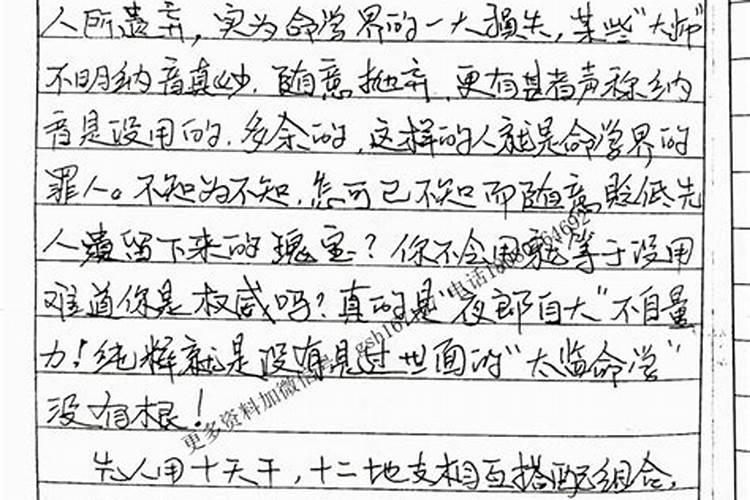 人所遗弃，实为命学界的一大损失，某些“大师”
不明纳音真妙，随意抛弃，更有甚者声称纳
音是没用的，多余的，这样的人就是命学界的
罪人。不知为不知，怎可己不知而随意贬低先
人遗留下来的瑰宝？你不会用就等于没用
难道你是权威吗？真的是“夜郎自大”不自量
力！纯粹就是没有见过世面的“太监命学”
没有根！
先人用十天干，十二地支相互搭配组合，
更多资料加微信
电话